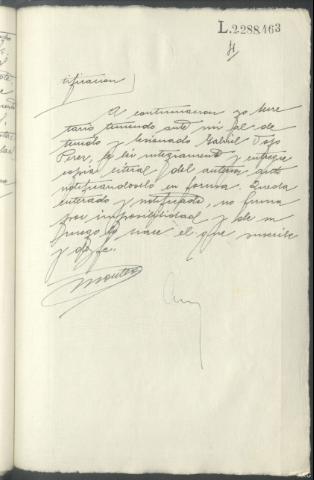 L.2288463
tificacion
A continuacion yo Secre
tario teniendo ante mi al de
tenido y lesionado Gabriel
Perez, le lei integramente y entregue
copia literal del anterior auto
notificandoselo en forma. Queda
enterado y notificado, no firma
por imposibilidad y de su
ruego lo hace el que suscribe
y doy fe.